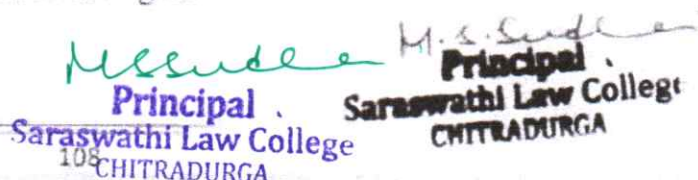 M.S.Sudha
Principal .
Saraswathi Law College
108
CHITRADURGA
M.S.Sudha
Principal .
Saraswathi Law College
CHITRADURGA